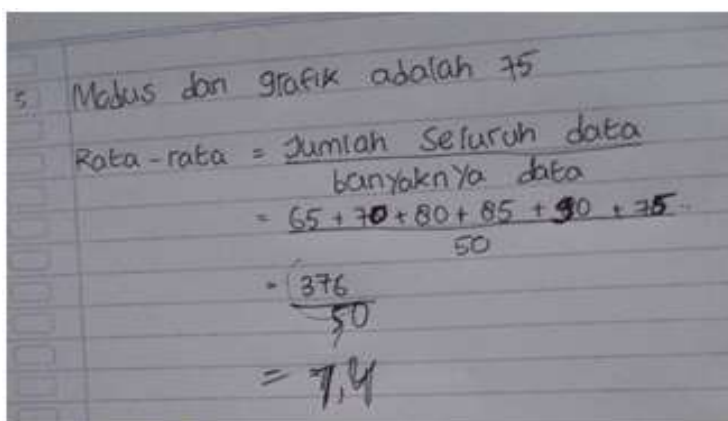 5. Modus dan grafik adalah 75
Rata-rata = Jumlah Seluruh data
banyaknya data
= 65 + 70 + 80 + 85 + 90 + 75
50
= 376
50
= 7,4